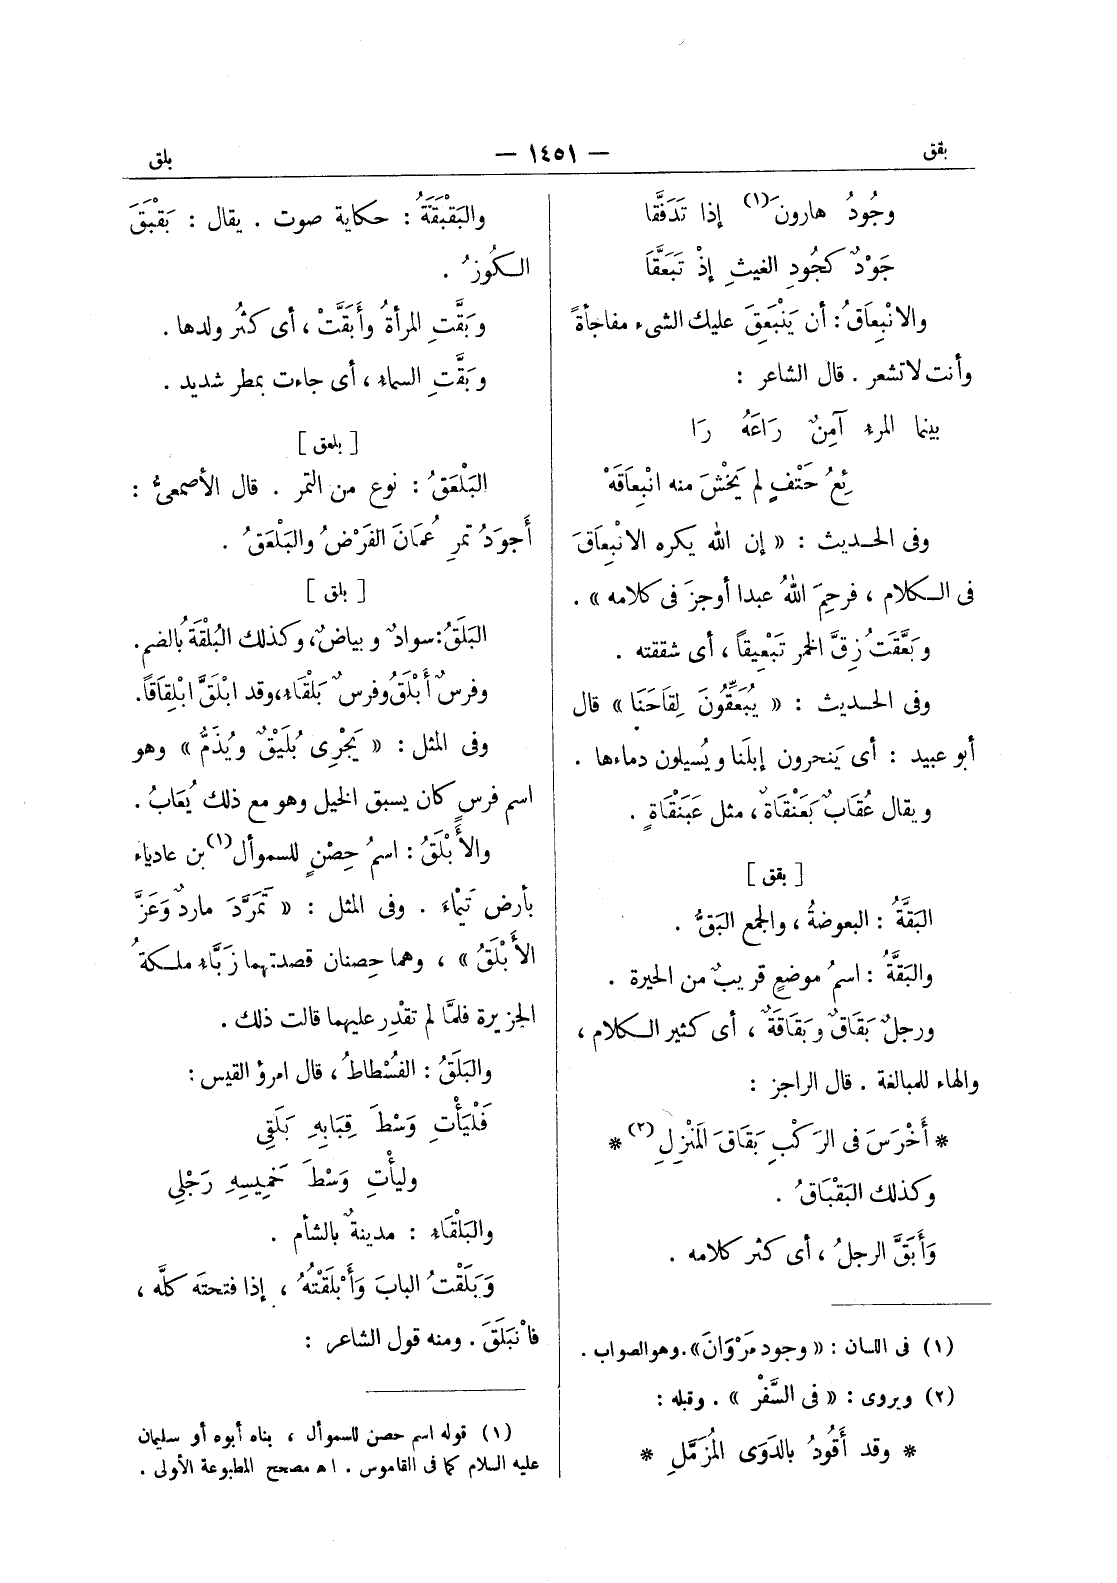 بقق
— ١٤٥١ —
بلق
وجُودُ هارونَ(١) إذا تَدَفَّقا
جَوْدٌ كجُودِ الغيثِ إذْ تَبَعَّقَا
والانْبِعَاقُ: أن يَنْبَعِقَ عليك الشىء مفاجأةً
وأنت لا تشعر . قال الشاعر :
بينما المرء آمِنٌ رَاعَهُ رَا
ئِعُ حَتْفٍ لم يَخْشَ منه انْبِعَاقَهْ
وفى الحديث : « إن الله يكره الانْبِعَاقَ
فى الكلام ، فرحِمَ اللهُ عبدا أوجزَ فى كلامه » .
وبَعَّقْتُ زِقَّ الخمر تَبْعِيقاً ، أى شققته .
وفى الحديث : « يُبَعِّقُونَ لِقَاحَنَا » قال
أبو عبيد : أى يَنحرون إبلَنا ويُسيلون دماءها .
ويقال عُقَابٌ بَعَنْقَاةٌ ، مثل عَبَنْقَاةٍ .
[ بقق ]
البَقَّةُ : البعوضةُ ، والجمع البَقُّ .
والبَقَّةُ : اسمُ موضعٍ قريبٌ من الحيرة .
ورجلٌ بَقَاقٌ وبَقَاقَةٌ ، أى كثير الكلام ،
والهاء للمبالغة . قال الراجز :
* أَخْرَسَ فى الرَكْبِ بَقَاقَ المَنْزِلِ(٢) *
وكذلك البَقْبَاقُ .
وَأَبَقَّ الرجلُ ، أى كثر كلامه .
(١) فى اللسان : « وجود مَرْوَانَ» . وهو الصواب .
(٢) ويروى : « فى السَّفْرِ » . وقبله :
* وقد أَقُودُ بالدَوَى المُزَمَّلِ *
والبَقْبَقَةُ : حكاية صوت . يقال : بَقْبَقَ
الكُوزُ .
وبَقَّتِ المرأةُ وأَبَقَّتْ ، أى كثُر ولدها .
وبَقَّتِ السماء ، أى جاءت بمطر شديد .
[ بلعق ]
البَلْعَقُ : نوع من التمر . قال الأصمعىُّ :
أجوَدُ تمرِ عُمَانَ الفَرْضُ والبَلْعَقُ .
[ بلق ]
البَلَقُ: سوادٌ وبياضٌ، وكذلك البُلْقَةُ بالضم.
وفرسٌ أَبْلَقُ وفرسٌ بَلْقَاء، وقد ابْلَقَّ ابْلِقَاقًا.
وفى المثل : « يَجْرِى بُلَيْقٌ ويُذَمُّ » وهو
اسم فرسٍ كان يسبق الخيل وهو مع ذلك يُعَابُ .
والأَبْلَقُ : اسمُ حِصْنٍ للسموأل(١) بن عادياء
بأرض تَيْمَاءَ . وفى المثل : « تَمَرَّدَ ماردٌ وَعَزَّ
الأَبْلَقُ » ، وهما حِصنان قصدتهما زَبَّاء ملكةُ
الجزيرة فلمَّا لم تقدِر عليهما قالت ذلك .
والبَلَقُ : الفُسْطاطُ ، قال امرؤ القيس :
فَلْيَأْتِ وَسْطَ قِبَابِهِ بَلَقِى
وليأْتِ وَسْطَ خَمِيسِهِ رَجْلِى
والبَلْقَاء : مدينةٌ بالشأم .
وَبَلَقْتُ البابَ وَأَبْلَقْتُهُ ، إذا فتحتَه كلَّه ،
فانْبَلَقَ . ومنه قول الشاعر :
(١) قوله اسم حصن للسموأل ، بناه أبوه أو سليمان
عليه السلام كما فى القاموس . ا ه‍ مصحح المطبوعة الأولى .